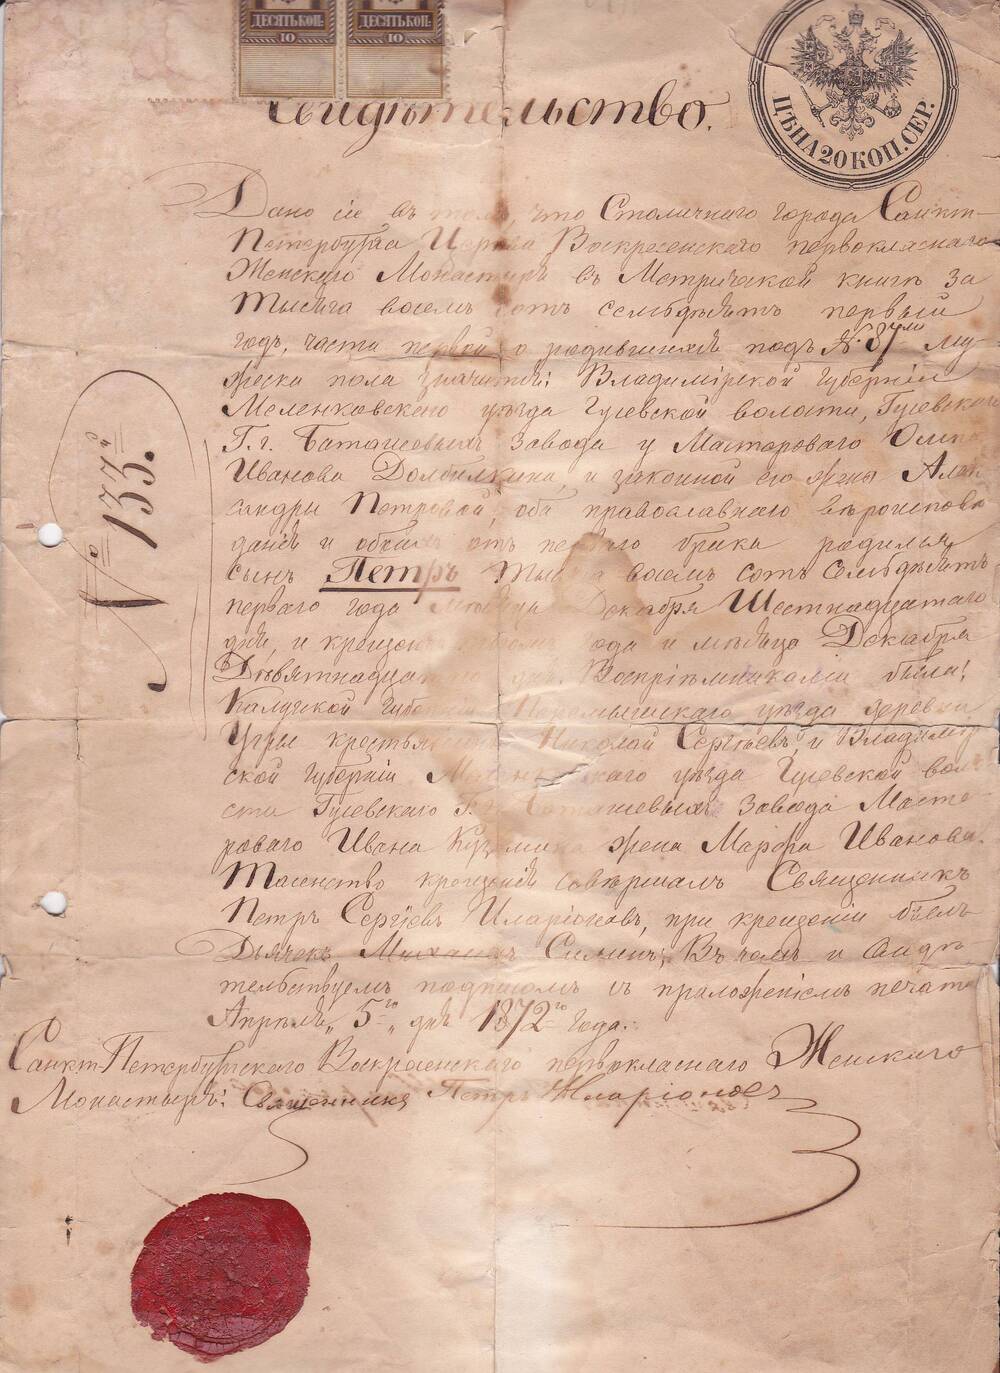 ДЕСЯТЬ КОП: ДЕСЯТЬ КОП:
10 10
ЦѢНА 20 КОП. СЕР.
Свидѣтельство.
Дано сіе въ томъ, что Столичнаго города Санкт-
Петербурга Церкви Воскресенскаго первокласнаго
Женскаго Монастыря въ Метрической книгѣ за
тысяча восемь сотъ семьдѣсятъ первый
годъ, части первой о родившихся подъ № 37мъ му-
жеска пола значится: Владимірской губерніи
Меленковскаго уѣзда Гусевской волости, Гусевскаго
Г.г. Баташевыхъ завода у Мастероваго
Иванова Долбилкина, и законной его жены Алек
сандры Петровой, оба православнаго вѣроиспове
данія и обоихъ отъ перваго брака родился
сынъ Петръ тысяча восемь сотъ семьдѣсятъ
перваго года мѣсяца Декабря Шестнадцатаго
дня, и крещенъ года и мѣсяца Декабря
Дѣвятнадцатаго дня. Воспріемниками были:
Калужской Губерніи Перемышльскаго уѣзда деревни
Угры крестьянинъ Николай Сергѣевъ, и Владимір
ской губерніи Меленковскаго уѣзда Гусевской воло
сти Гусевскаго Г.г. Баташевыхъ завода Масте-
роваго Ивана Кузмина жена Марфа Иванова.
Таинство крещенія совѣршалъ Священникъ
Петръ Сергіевъ Иларіоновъ, при крещеніи былъ
Дьячекъ Михаилъ Силинъ; Въ чемъ и свидѣ
тельствуемъ подписомъ съ приложеніемъ печати
Апрѣля „5го„ дня 1872го года.
Санкт-Петербургскаго Воскресенскаго первокласнаго Женскаго
Монастыря: Священникъ Петръ Иларіоновъ
№ 133.